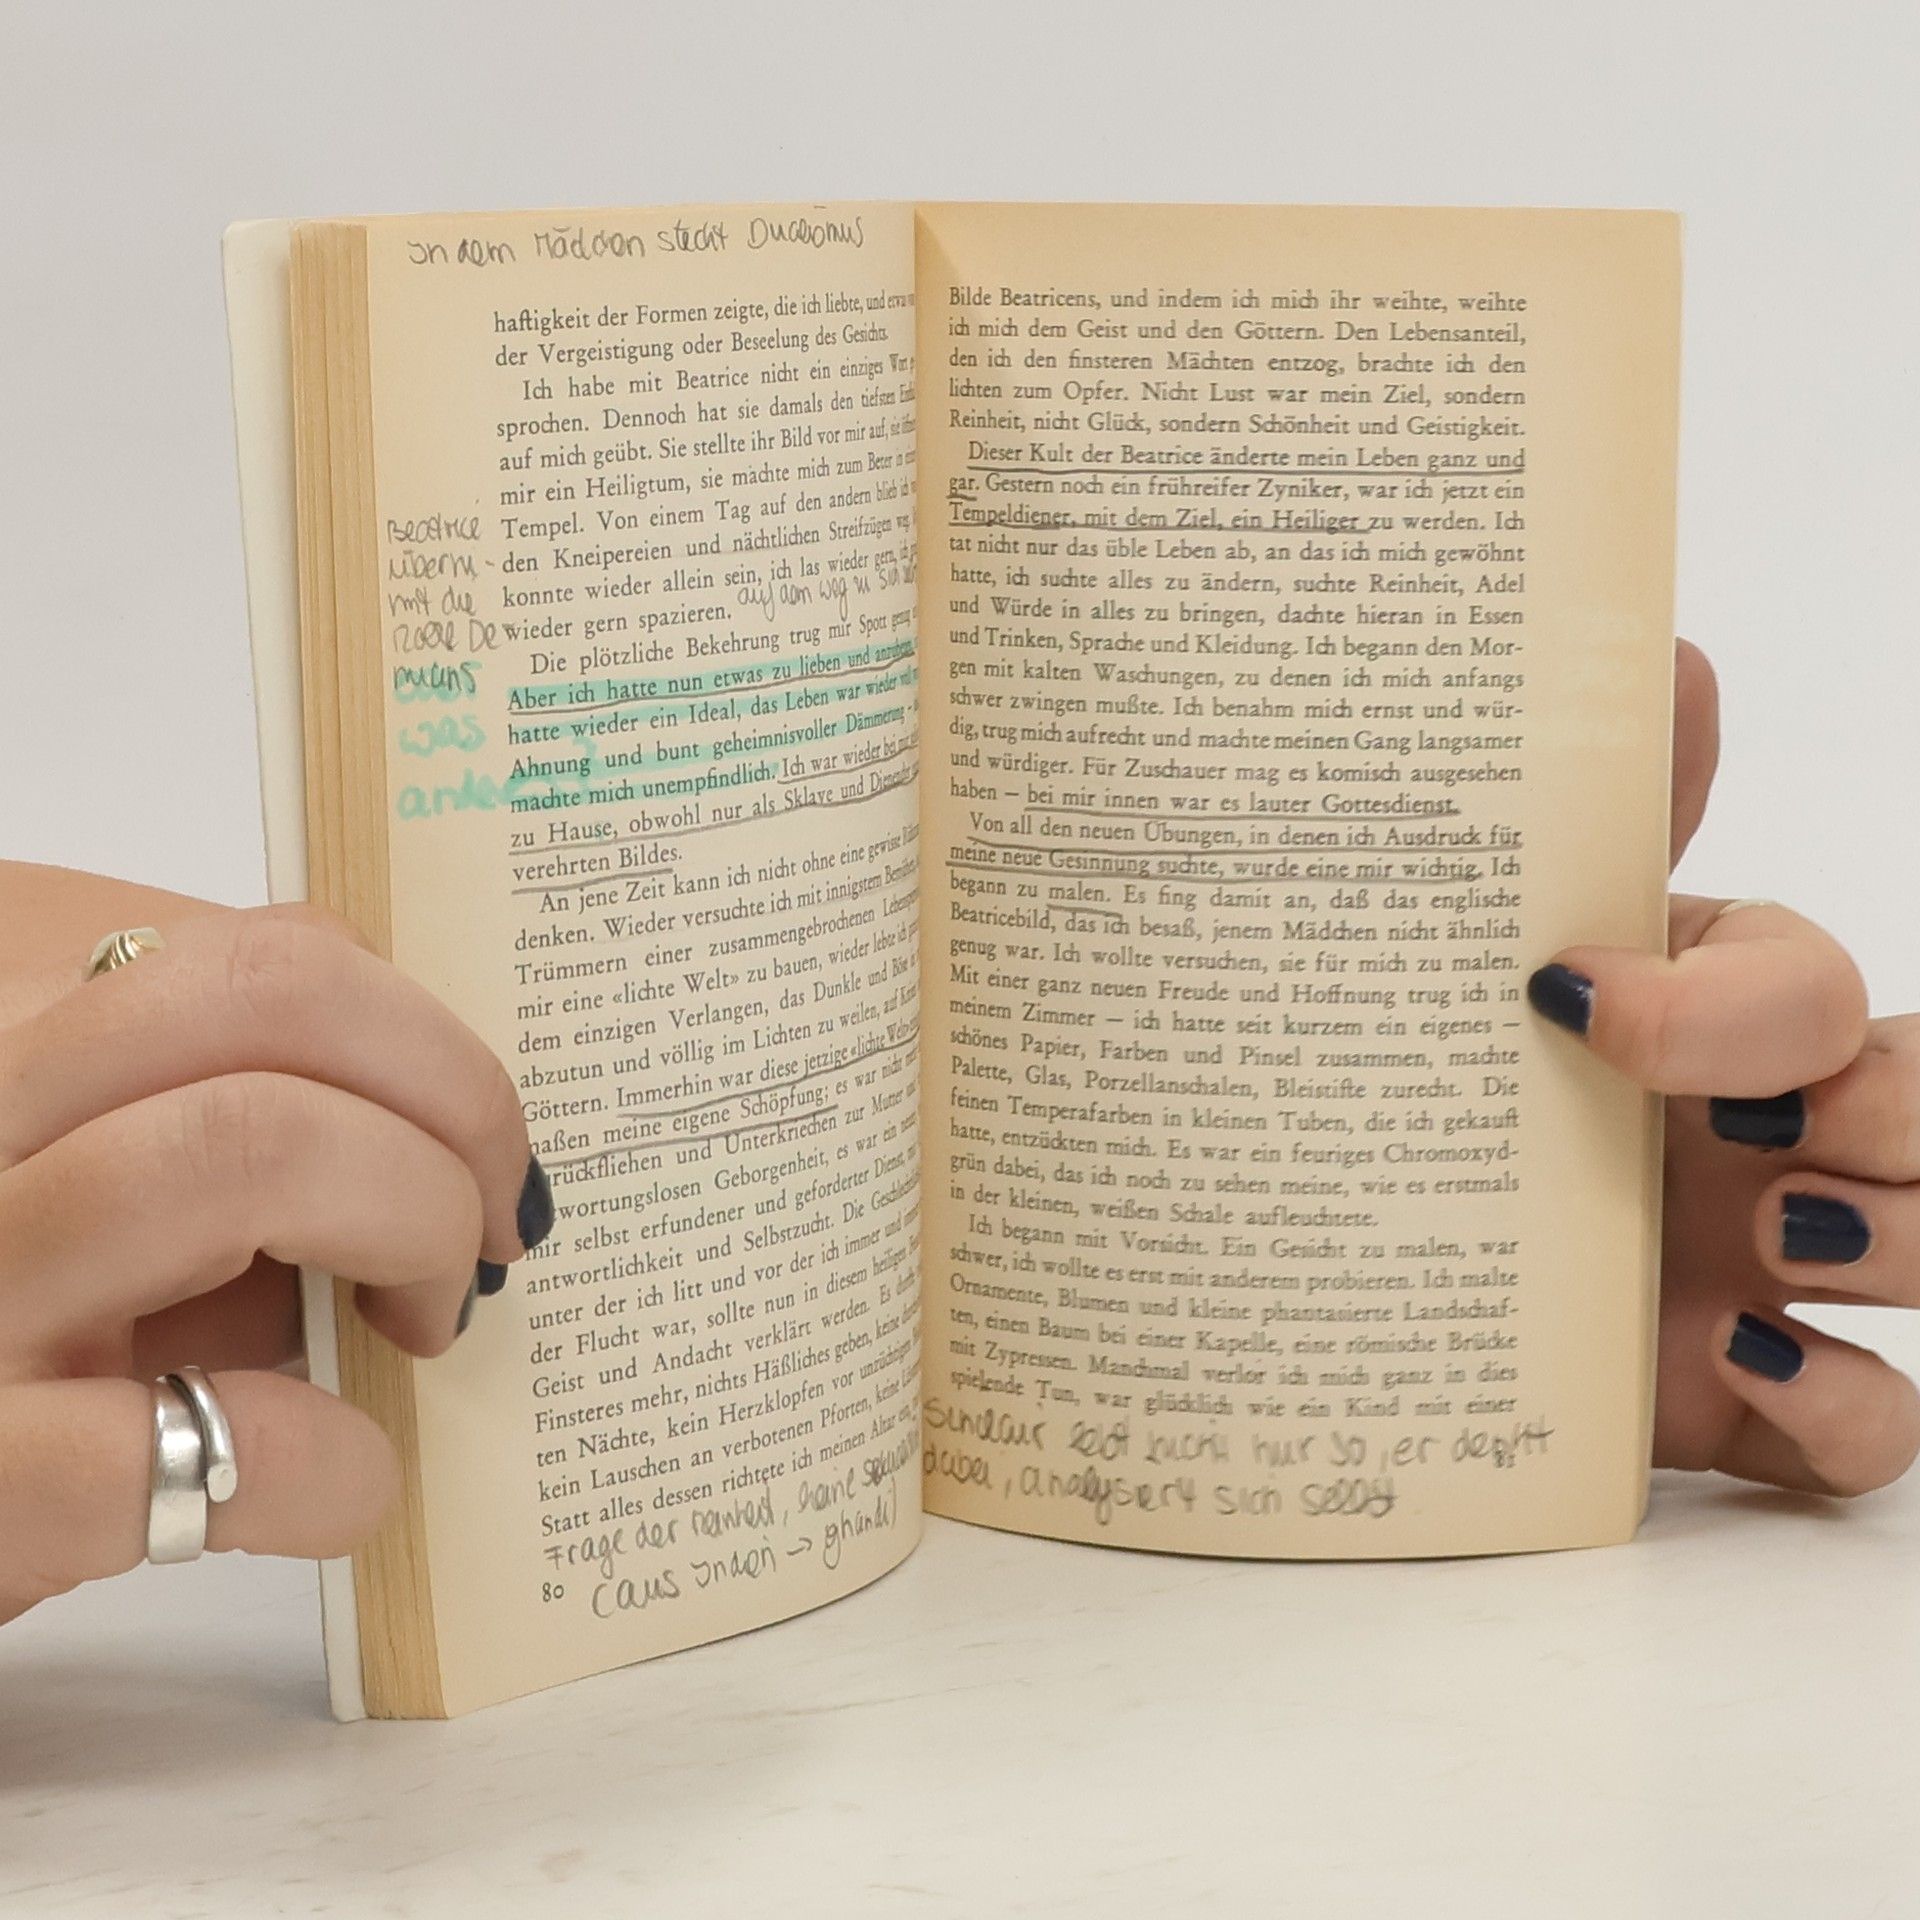 In dem Mädchen steckt Dualismus
haftigkeit der Formen zeigte, die ich liebte, und etwas
der Vergeistigung oder Beseelung des Gesichts.
Ich habe mit Beatrice nicht ein einziges Wort
sprochen. Dennoch hat sie damals den tiefsten
auf mich geübt. Sie stellte ihr Bild vor mir auf, sie
mir ein Heiligtum, sie machte mich zum Beter in
Tempel. Von einem Tag auf den andern blieb ich
den Kneipereien und nächtlichen Streifzügen weg.
konnte wieder allein sein, ich las wieder gern, ich
wieder gern spazieren. auf dem weg zu sich
Beatrice
überni-
mt die
Rolle De
mians
was
Die plötzliche Bekehrung trug mir Spott genug
Aber ich hatte nun etwas zu lieben und anzubeten,
hatte wieder ein Ideal, das Leben war wieder voll
Ahnung und bunt geheimnisvoller Dämmerung –
machte mich unempfindlich. Ich war wieder bei mir
zu Hause, obwohl nur als Sklave und Dienender
verehrten Bildes.
An jene Zeit kann ich nicht ohne eine gewisse
denken. Wieder versuchte ich mit innigstem Bemühen,
Trümmern einer zusammengebrochenen
mir eine «lichte Welt» zu bauen, wieder lebte ich
dem einzigen Verlangen, das Dunkle und Böse
abzutun und völlig im Lichten zu weilen, auf
Göttern. Immerhin war diese jetzige «lichte Welt»
maßen meine eigene Schöpfung; es war nicht
urückfliehen und Unterkriechen zur Mutter
wortungslosen Geborgenheit, es war ein neuer,
mir selbst erfundener und geforderter Dienst, mit
antwortlichkeit und Selbstzucht. Die
unter der ich litt und vor der ich immer und
der Flucht war, sollte nun in diesem heiligen
Geist und Andacht verklärt werden. Es durfte
Finsteres mehr, nichts Häßliches geben, keine
ten Nächte, kein Herzklopfen vor unzüchtigen
kein Lauschen an verbotenen Pforten, keine
Statt alles dessen richtete ich meinen Altar ein,
Frage der Reinheit, keine
80 (aus Indien -> ghandi)
Bilde Beatricens, und indem ich mich ihr weihte, weihte
ich mich dem Geist und den Göttern. Den Lebensanteil,
den ich den finsteren Mächten entzog, brachte ich den
lichten zum Opfer. Nicht Lust war mein Ziel, sondern
Reinheit, nicht Glück, sondern Schönheit und Geistigkeit.
Dieser Kult der Beatrice änderte mein Leben ganz und
gar. Gestern noch ein frühreifer Zyniker, war ich jetzt ein
Tempeldiener, mit dem Ziel, ein Heiliger zu werden. Ich
tat nicht nur das üble Leben ab, an das ich mich gewöhnt
hatte, ich suchte alles zu ändern, suchte Reinheit, Adel
und Würde in alles zu bringen, dachte hieran in Essen
und Trinken, Sprache und Kleidung. Ich begann den Mor-
gen mit kalten Waschungen, zu denen ich mich anfangs
schwer zwingen mußte. Ich benahm mich ernst und wür-
dig, trug mich aufrecht und machte meinen Gang langsamer
und würdiger. Für Zuschauer mag es komisch ausgesehen
haben – bei mir innen war es lauter Gottesdienst.
Von all den neuen Übungen, in denen ich Ausdruck für
meine neue Gesinnung suchte, wurde eine mir wichtig. Ich
begann zu malen. Es fing damit an, daß das englische
Beatricebild, das ich besaß, jenem Mädchen nicht ähnlich
genug war. Ich wollte versuchen, sie für mich zu malen.
Mit einer ganz neuen Freude und Hoffnung trug ich in
meinem Zimmer – ich hatte seit kurzem ein eigenes –
schönes Papier, Farben und Pinsel zusammen, machte
Palette, Glas, Porzellanschalen, Bleistifte zurecht. Die
feinen Temperafarben in kleinen Tuben, die ich gekauft
hatte, entzückten mich. Es war ein feuriges Chromoxyd-
grün dabei, das ich noch zu sehen meine, wie es erstmals
in der kleinen, weißen Schale aufleuchtete.
Ich begann mit Vorsicht. Ein Gesicht zu malen, war
schwer, ich wollte es erst mit anderem probieren. Ich malte
Ornamente, Blumen und kleine phantasierte Landschaf-
ten, einen Baum bei einer Kapelle, eine römische Brücke
mit Zypressen. Manchmal verlor ich mich ganz in dies
spielende Tun, war glücklich wie ein Kind mit einer
Sinclair lebt nicht nur so, er denkt
dabei, analysiert sich selbst